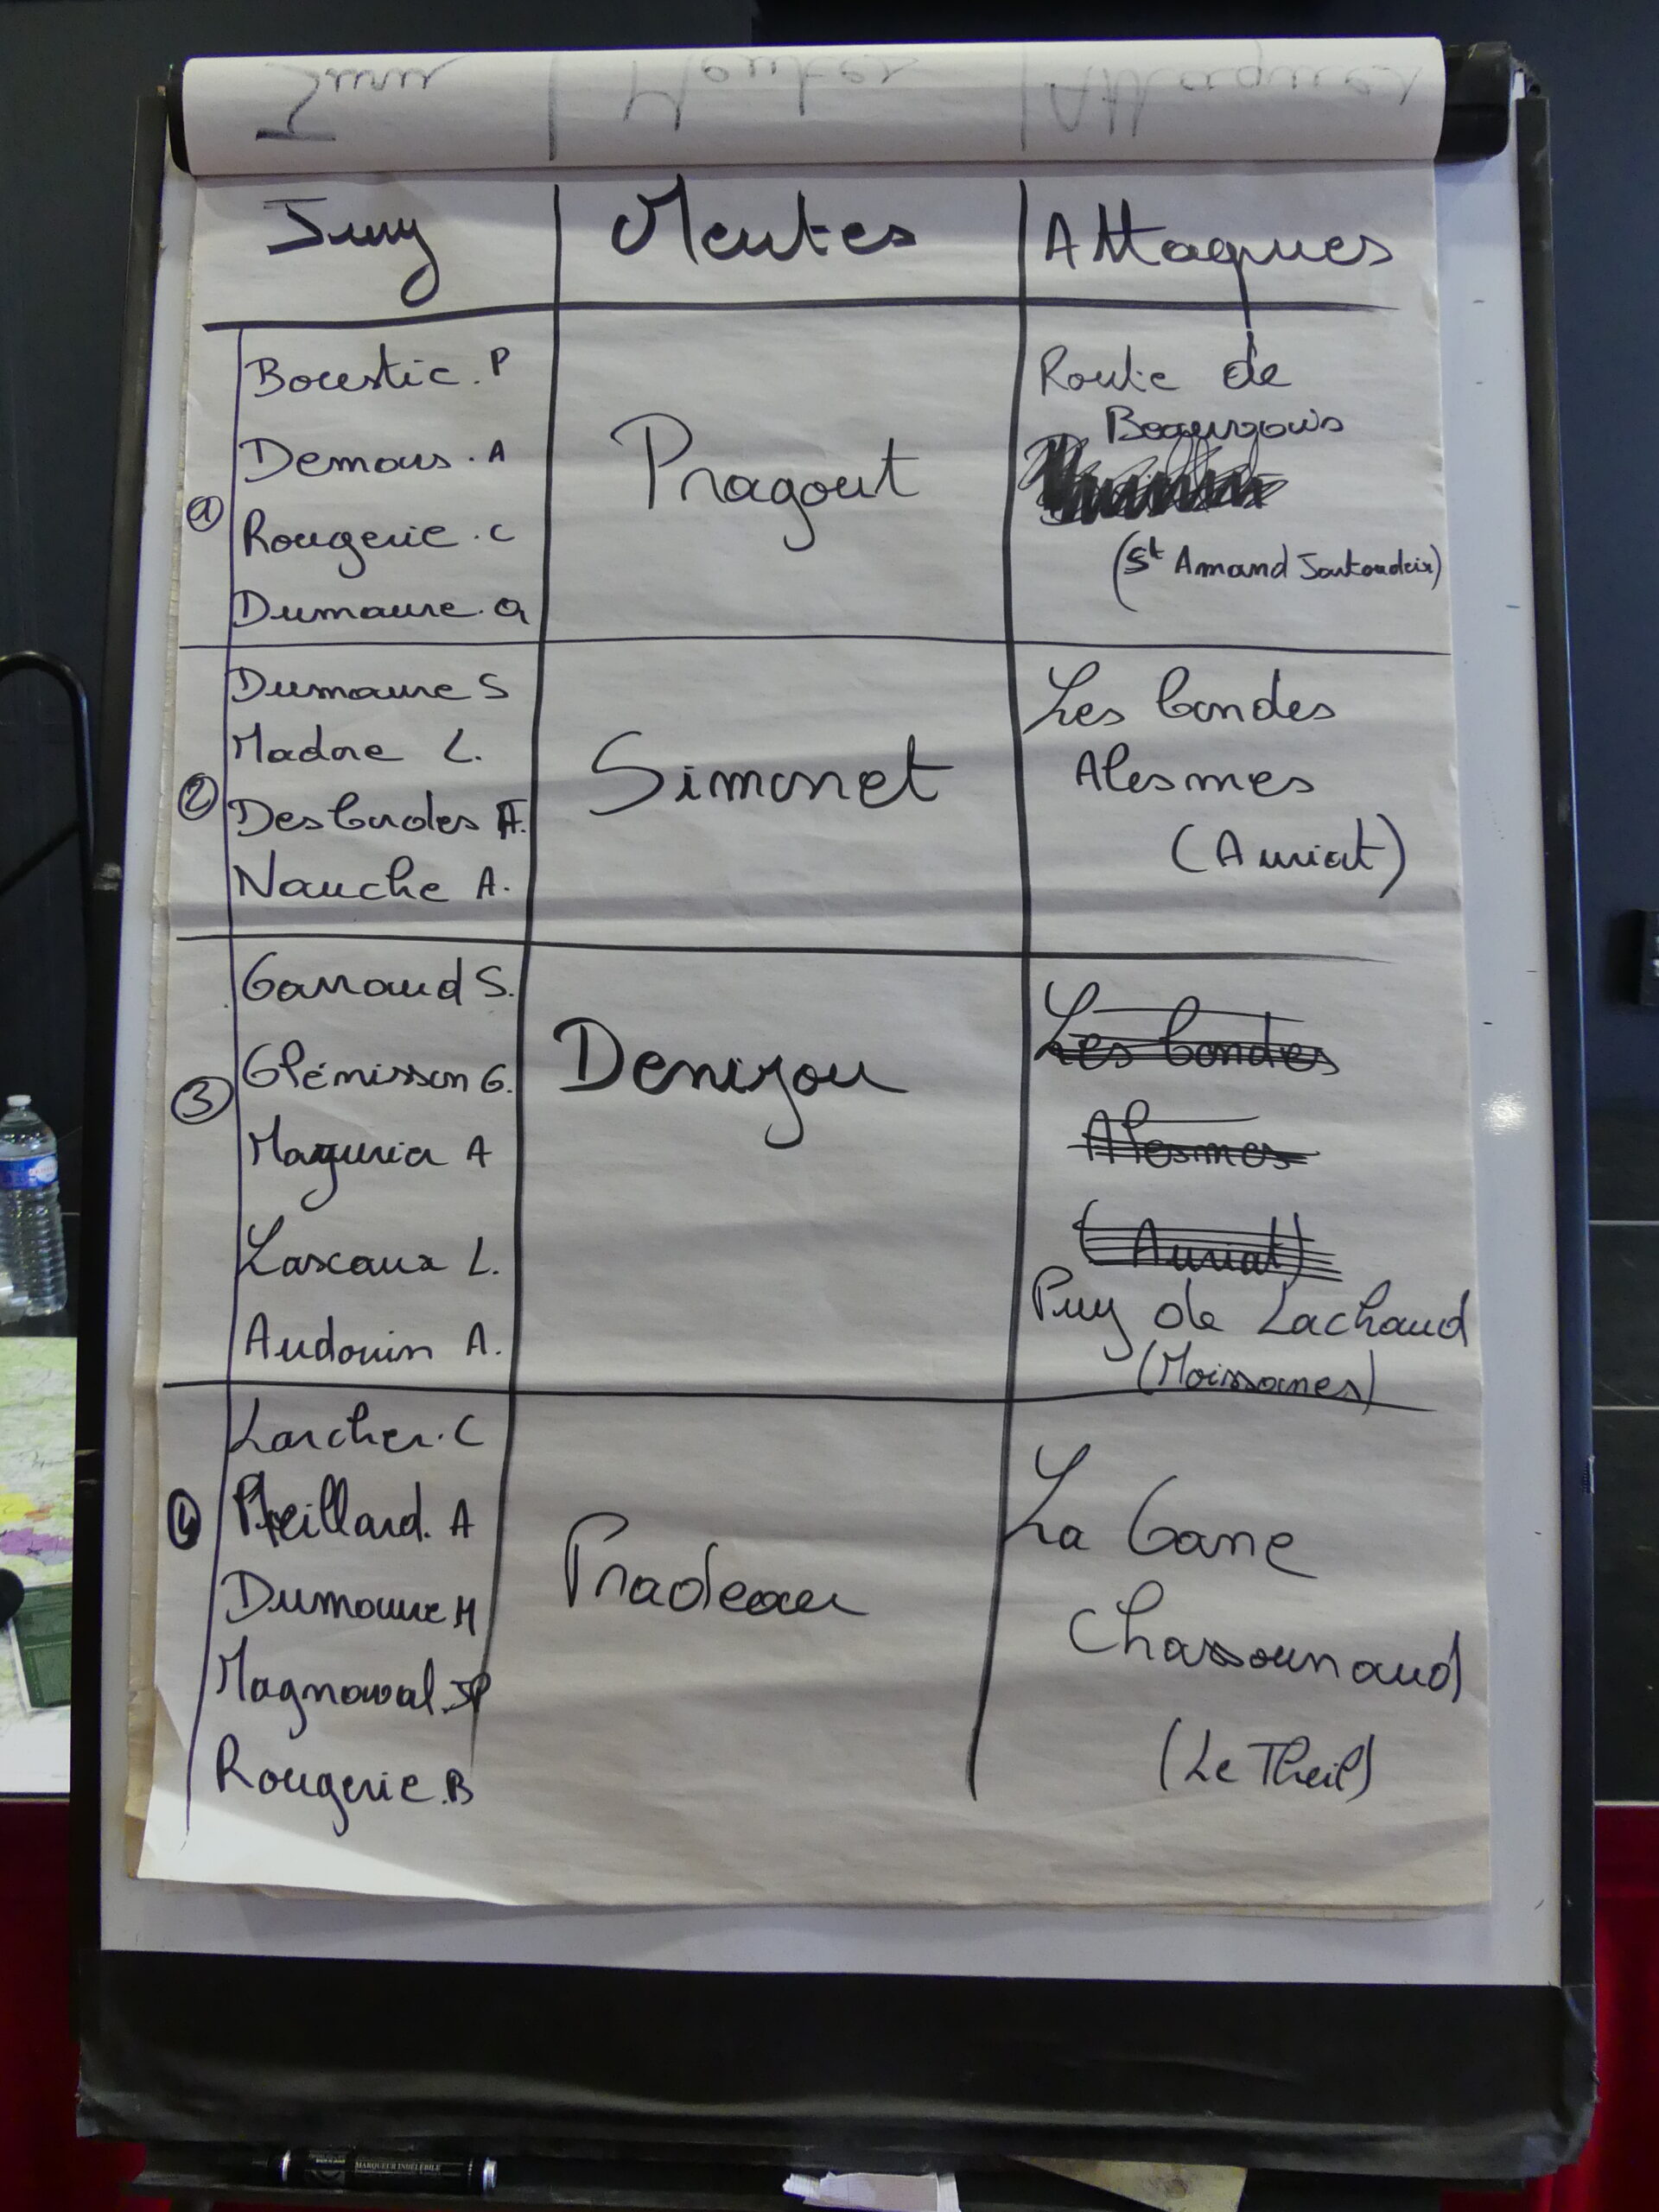 Jury Meutes Attaques
① Boustic. P
Demars. A
Rougerie. C
Dumaure. G
Pragout
Route de
(St Amand Jartoudeix)
② Dumaure S
Madore L.
Desbordes F.
Nauche A.
Simonet
Les Bordes
Alesmes
(Auriat)
③ Garraud S.
Glénisson G.
Magurier A
Lascaux L.
Audouin A.
Denizou
Les Bordes
Alesmes
(Auriat)
Puy de Lachaud
(Moissannes)
④ Larcher. C
Pteillard. A
Dumaure M
Magnaval. JP
Rougerie. B
Pradeau
La Gane
Chassounaud
(Le Theil)
MARQUEUR INDÉLÉBILE